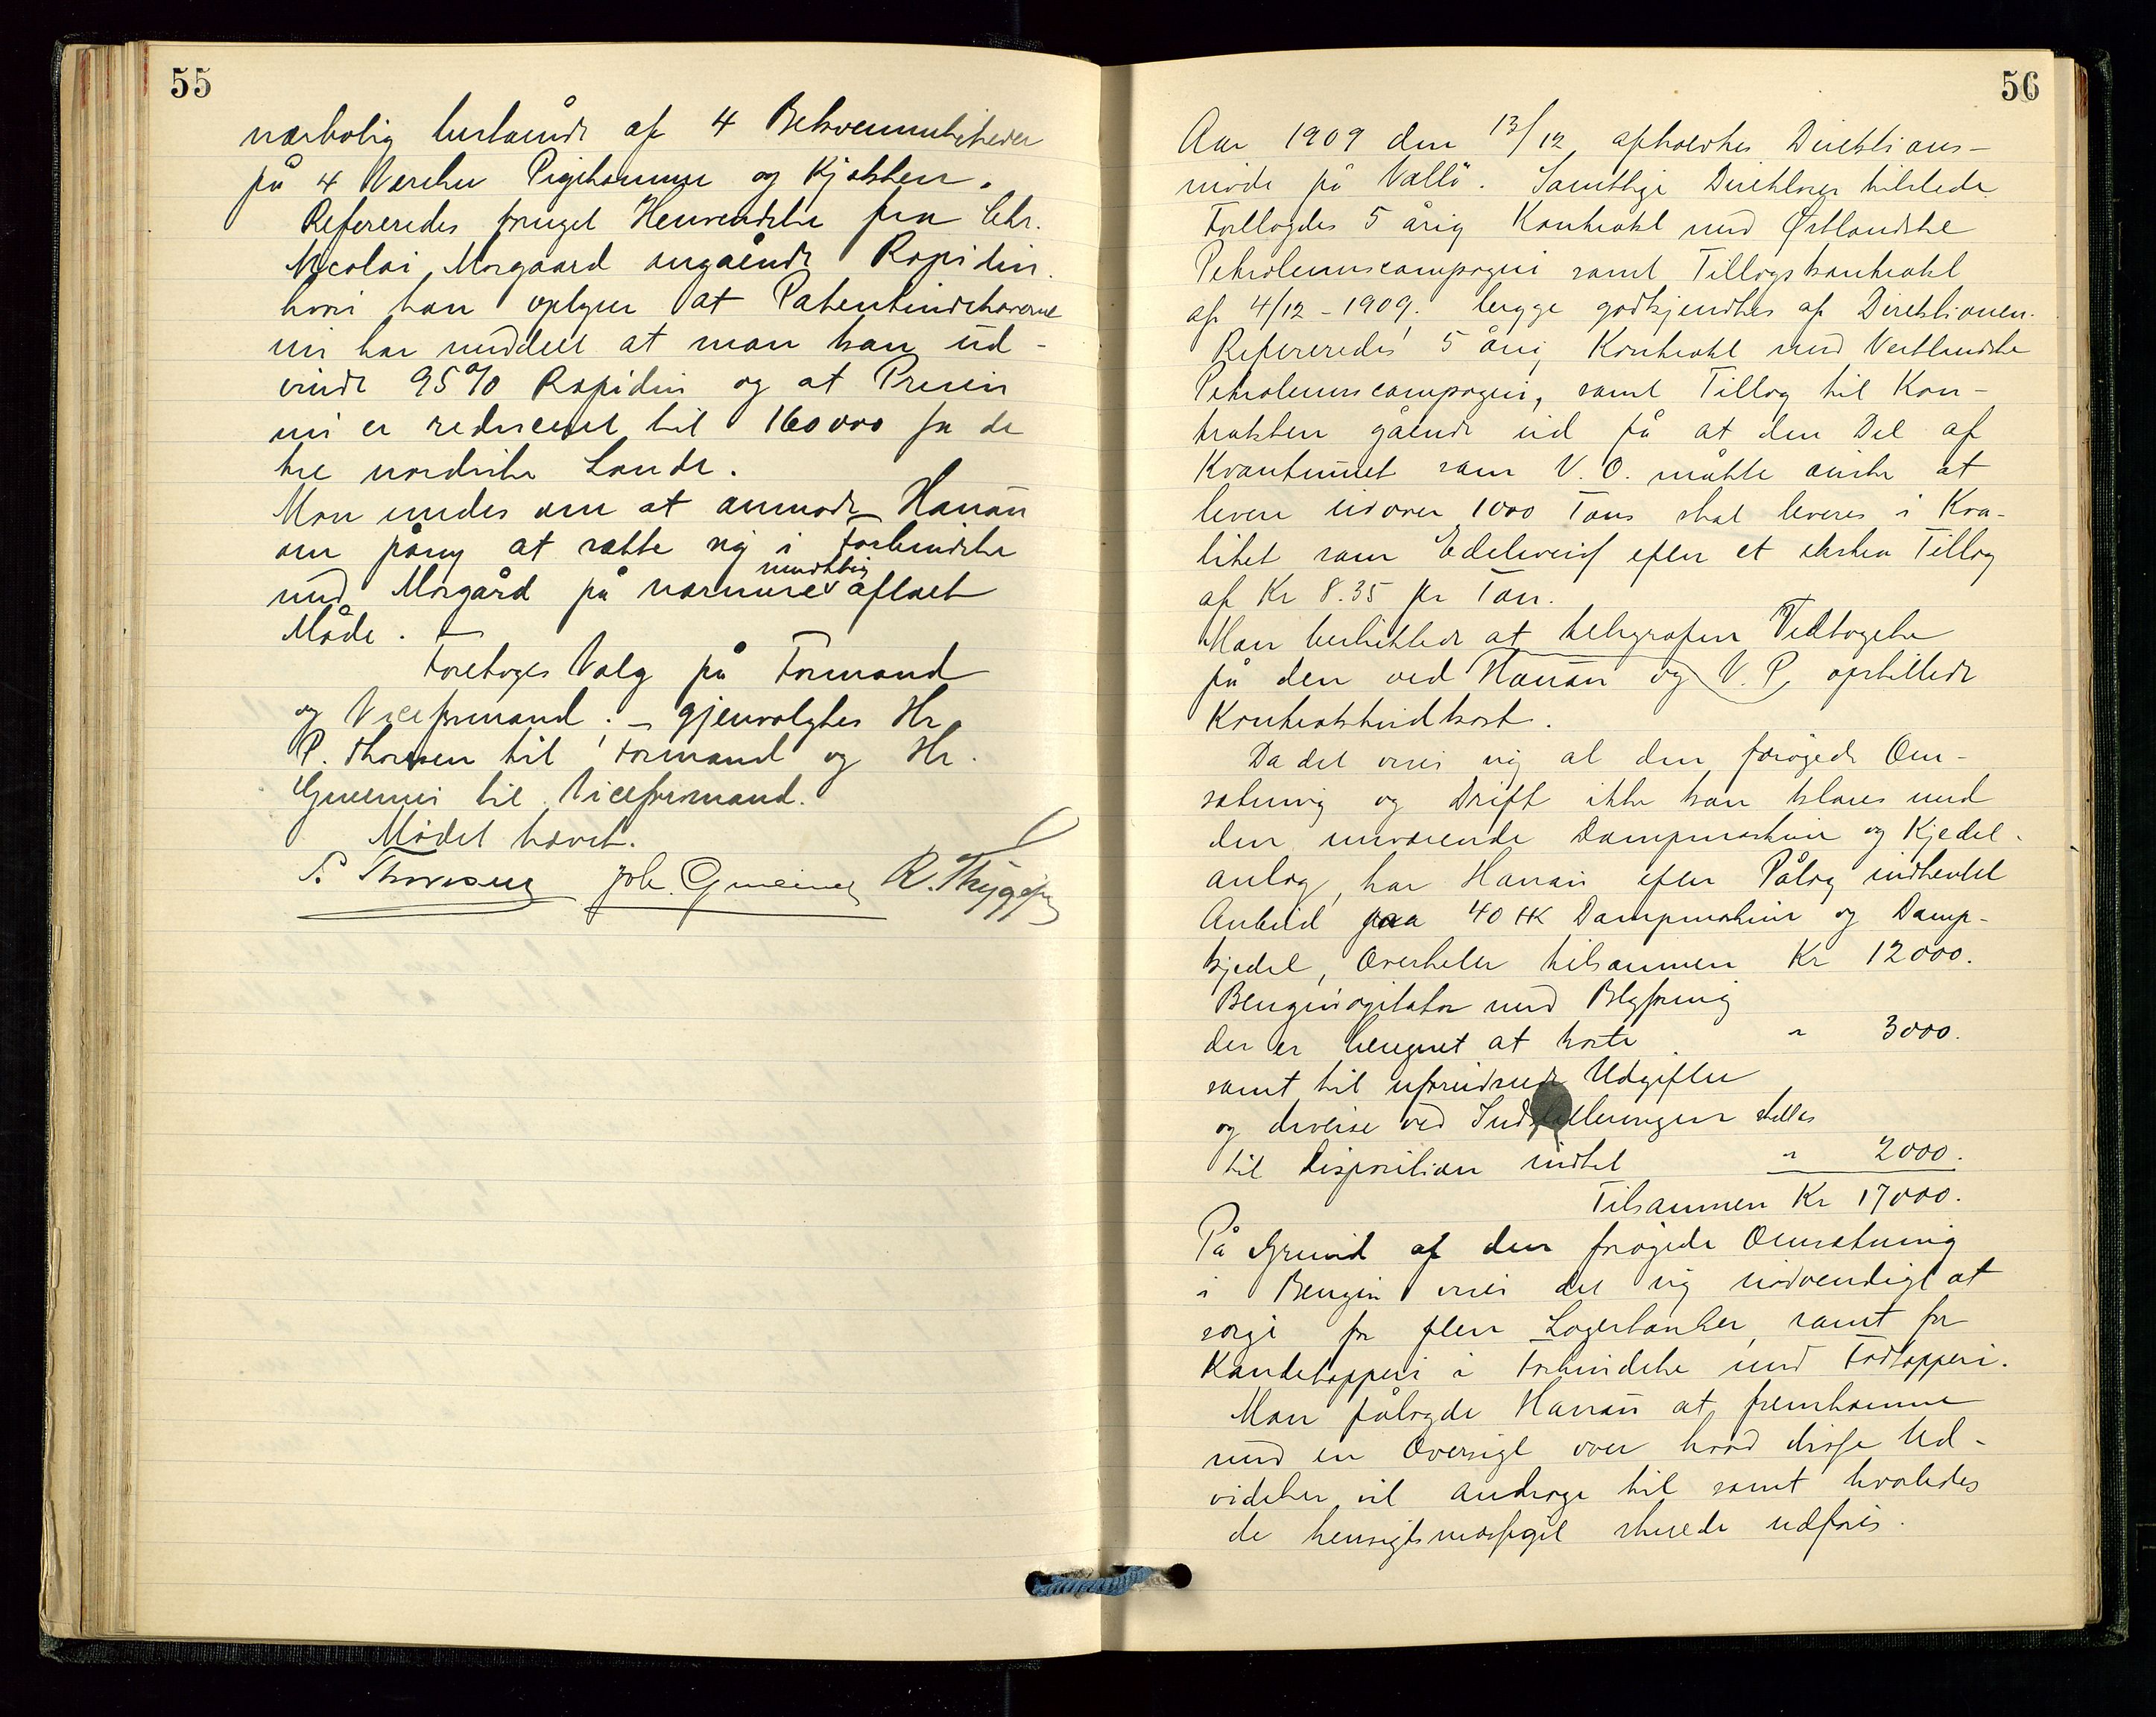 55
nærbolig bestaaende af 4 Bekvemmeligheder
på 4 Værelser Pigekammer og Kjøkken.
Refereredes fornyet Henvendelse fra Chr.
Nicolai Morgaard angående Rapidin
hvori han oplyser at Patentindehaverne
nu har meddelt at man kan ud-
vinde 95% Rapidin og at Prisen
nu er reduceret til 160000 for de
tre nordiske Lande.
Man enedes om at anmode Hanan
om påny at sætte sig i Forbindelse
med Morgård på nærmere mundtlig aftalt
Måde. —
Foretoges Valg på Formand
og Viceformand; — gjenvalgtes Hr.
P. Thorsen til Formand og Hr.
Gmeiner til Viceformand.
Mødet hævet.
P. Thorsen Joh. Gmeiner R. Thygesen
56
Aar 1909 den 13/12 afholdtes Direktions-
møde på Vallö. Samtlige Direktører tilstede.
Forelagdes 5 årig Kontrakt med Østlandske
Petroleumscompagni samt Tillægskontrakt
af 4/12 - 1909. begge godkjendtes af Direktionen.
Refereredes 5 årig Kontrakt med Vestlandske
Petroleumscompagni, samt Tillæg til Kon-
trakten gående ud på at den Del af
Kvantumet som V. O. måtte ønske at
levere udover 1000 Tons skal leveres i Kva-
litet som Edelweiss efter et ekstra Tillæg
af Kr 8.35 pr Ton.
Man besluttede at telegrafere Vedtagelse
på den ved Hanan og V. P. opstillede
Kontraktsudkast.
Da det viser sig at den forøgede Om-
sætning og Drift ikke kan klares med
den nuværende Dampmaskine og Kjedel-
anlæg, har Hanan efter Pålæg indhentet
Anbud paa 40 HK Dampmaskine og Damp-
kjedel, Overheter tilsammen Kr 12000.
Benzinagitator med Blyforing
der er beregnet at koste " 3000.
samt til uforudseede Udgifter
og diverse ved Indstillingen stilles
til Disposition indtil " 2000.
Tilsammen Kr 17000.
På Grund af den forøgede Omsætning
i Benzin viser det sig nødvendigt at
sørge for flere Lagertanker, samt for
Kandetapperi i Forbindelse med Fadtapperi.
Man pålagde Hanan at fremkomme
med en Oversigt over hvad disse Ud-
videlser vil andrage til samt hvorledes
de hensigtsmæssigst skulde udføres.